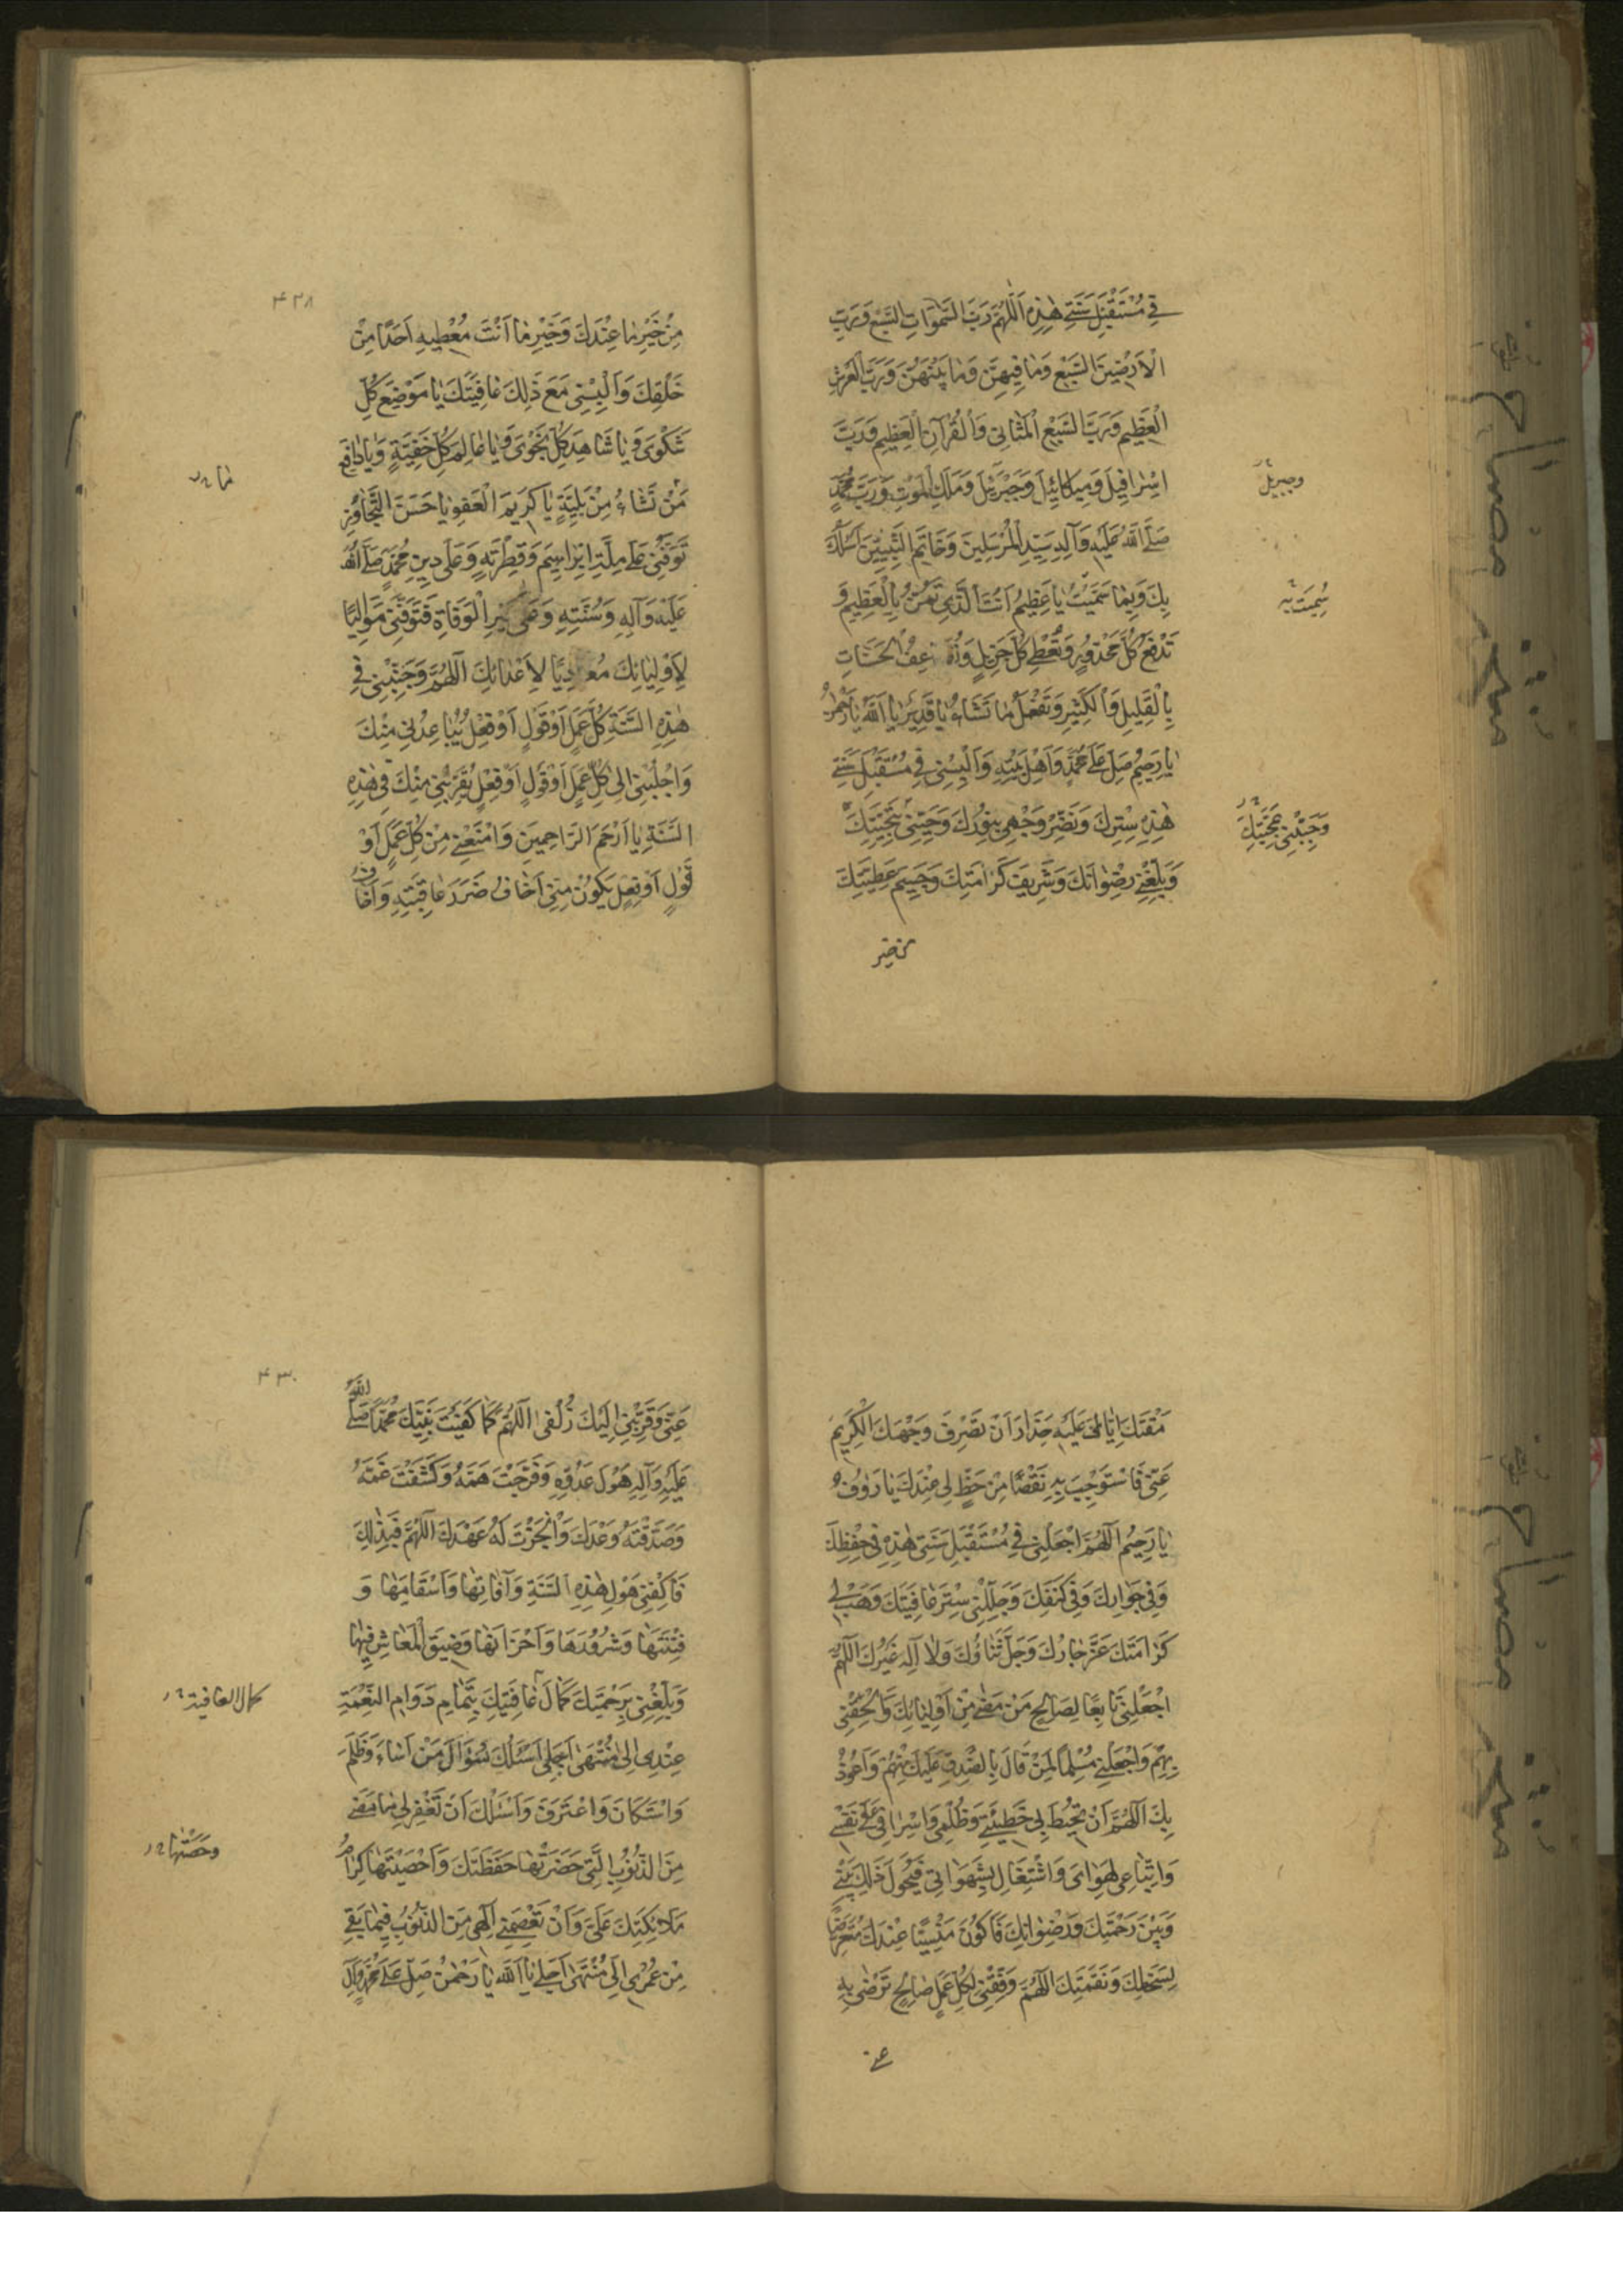 في مُسْتَقْبَلِ سَنَتي هٰذِهِ اَللّٰهُمَّ رَبَّ السَّمٰوَاتِ السَّبْعِ وَرَبَّ
الْاَرَضِينَ السَّبْعِ وَمٰا فِيهِنَّ وَمٰا بَيْنَهُنَّ وَرَبَّ الْعَرْشِ
الْعَظِيمِ وَرَبَّ السَّبْعِ الْمَثٰانِي وَالْقُرْآنِ الْعَظِيمِ وَرَبَّ
اِسْرٰافِيلَ وَمِيكٰائِيلَ وَجَبْرَئِيلَ وَمَلَكِ الْمَوْتِ وَرَبَّ مُحَمَّدٍ
وجبريل
صَلَّى اللّٰهُ عَلَيْهِ وَآلِهِ سَيِّدِ الْمُرْسَلِينَ وَخَاتَمِ النَّبِيِّينَ اَسْئَلُكَ
بِكَ وَبِمٰا سَمَّيْتَ يٰا عَظِيمُ اَنْتَ الَّذِي تَمُنُّ بِالْعَظِيمِ وَ
سُمِّيتَ به
تَدْفَعُ كُلَّ مَحْذُورٍ وَتُعْطِي كُلَّ جَزِيلٍ وَتُضٰاعِفُ الْحَسَنَاتِ
بِالْقَلِيلِ وَالْكَثِيرِ وَتَفْعَلُ مٰا تَشَاءُ يٰا قَدِيرُ يٰا اَللّٰهُ يٰا رَحْمٰنُ
يٰا رَحِيمُ صَلِّ عَلَى مُحَمَّدٍ وَاَهْلِ بَيْتِهِ وَاَلْبِسْنِي فِي مُسْتَقْبَلِ سَنَتي
هٰذِهِ سِتْرَكَ وَنَضِّرْ وَجْهِي بِنُورِكَ وَحَيِّنِي بِتَحِيَّتِكَ
وَحَبِّبْنِي بمحَبَّتِكَ
وَبَلِّغْنِي رِضْوٰانَكَ وَشَرِيفَ كَرٰامَتِكَ وَجَسِيمَ عَطِيَّتِكَ
من خير
٤٣٨
مِنْ خَيْرِ مٰا عِنْدَكَ وَخَيْرِ مٰا اَنْتَ مُعْطِيهِ اَحَدًا مِنْ
خَلْقِكَ وَاَلْبِسْنِي مَعَ ذَلِكَ عٰافِيَتَكَ يٰا مَوْضِعَ كُلِّ
شَكْوَى وَيٰا شَاهِدَ كُلِّ نَجْوَى وَيٰا عٰالِمَ كُلِّ خَفِيَّةٍ وَيٰا دٰافِعَ
مٰا
مَنْ تَشٰاءُ مِنْ بَلِيَّةٍ يٰا كَرِيمَ الْعَفْوِ يٰا حَسَنَ التَّجٰاوُزِ
تَوَفَّنِي عَلَى مِلَّةِ اِبْرٰاهِيمَ وَفِطْرَتِهِ وَعَلَى دِينِ مُحَمَّدٍ صَلَّى اللّٰهُ
عَلَيْهِ وَآلِهِ وَسُنَّتِهِ وَعَلى خَيْرِ الْوَفَاةِ فَتَوَفَّنِي مُوٰالِيًا
لِاَوْلِيٰائِكَ مُعٰادِيًا لِاَعْدٰائِكَ اَللّٰهُمَّ وَجَنِّبْنِي فِي
هٰذِهِ السَّنَةِ كُلَّ عَمَلٍ اَوْ قَوْلٍ اَوْ فِعْلٍ يُبٰاعِدُنِي مِنْكَ
وَاجْلُبْنِي اِلَى كُلِّ عَمَلٍ اَوْ قَوْلٍ اَوْ فِعْلٍ يُقَرِّبُنِي مِنْكَ فِي هٰذِهِ
السَّنَةِ يٰا اَرْحَمَ الرَّاحِمِينَ وَامْنَعْنِي مِنْ كُلِّ عَمَلٍ اَوْ
قَوْلٍ اَوْ فِعْلٍ يَكُونُ مِنِّي اَخٰافُ ضَرَرَ عٰاقِبَتِهِ وَاَخٰافُ
مَقْتَكَ اِيّٰايَ عَلَيْهِ حِذَارَ اَنْ تَصْرِفَ وَجْهَكَ الْكَرِيمَ
عَنِّي فَاَسْتَوْجِبَ بِهِ نَقْصًا مِنْ حَظٍّ لِي عِنْدَكَ يٰا رَؤُفُ
يٰا رَحِيمُ اَللّٰهُمَّ اجْعَلْنِي فِي مُسْتَقْبَلِ سَنَتِي هٰذِهِ فِي حِفْظِكَ
وَفِي جِوٰارِكَ وَفِي كَنَفِكَ وَجَلِّلْنِي سِتْرَ عٰافِيَتِكَ وَهَبْ لِي
كَرٰامَتَكَ عَزَّ جٰارُكَ وَجَلَّ ثَنٰاؤُكَ وَلٰا اِلٰهَ غَيْرُكَ اَللّٰهُمَّ
اجْعَلْنِي تَابِعًا لِصَالِحِ مَنْ مَضَى مِنْ اَوْلِيٰائِكَ وَاَلْحِقْنِي
بِهِمْ وَاجْعَلْنِي مُسْلِمًا لِمَنْ قَالَ بِالصِّدْقِ عَلَيْكَ مِنْهُمْ وَاَعُوذُ
بِكَ اَللّٰهُمَّ اَنْ تُحِيطَ بِي خَطِيئَتِي وَظُلْمِي وَاِسْرٰافِي عَلَى نَفْسِي
وَاتِّبٰاعِي لِهَوٰايَ وَاشْتِغَالِي بِشَهَوٰاتِي فَيَحُولَ ذَلِكَ بَيْنِي
وَبَيْنَ رَحْمَتِكَ وَرِضْوٰانِكَ فَاَكُونَ مَنْسِيًّا عِنْدَكَ مُتَعَرِّضًا
لِسَخَطِكَ وَنِقْمَتِكَ اَللّٰهُمَّ وَفِّقْنِي لِكُلِّ عَمَلٍ صٰالِحٍ تَرْضٰى بِهِ
عنّي
٤٣٠
عَنِّي وَقَرِّبْنِي اِلَيْكَ زُلْفٰى اَللّٰهُمَّ كَمٰا كَفَيْتَ نَبِيَّكَ مُحَمَّدًا صَلَّى اللّٰهُ
عَلَيْهِ وَآلِهِ هَوْلَ عَدُوِّهِ وَفَرَّجْتَ هَمَّهُ وَكَشَفْتَ غَمَّهُ
وَصَدَقْتَهُ وَعْدَكَ وَاَنْجَزْتَ لَهُ عَهْدَكَ اَللّٰهُمَّ فَبِذٰلِكَ
فَاكْفِنِي هَوْلَ هٰذِهِ السَّنَةِ وَآفٰاتِهٰا وَاَسْقَامَهٰا وَ
فِتْنَتَهٰا وَشُرُورَهَا وَاَحْزٰانَهٰا وَضِيقَ الْمَعٰاشِ فِيهٰا
وَبَلِّغْنِي بِرَحْمَتِكَ كَمٰالَ عٰافِيَتِكَ بِتَمٰامِ دَوٰامِ النِّعْمَةِ
كمال العافية
عِنْدِي اِلَى مُنْتَهَى اَجَلِي اَسْئَلُكَ سُؤَالَ مَنْ اَسٰاءَ وَظَلَمَ
وَاسْتَكَانَ وَاعْتَرَفَ وَاَسْئَلُكَ اَنْ تَغْفِرَ لِي مٰا مَضَى
مِنَ الذُّنُوبِ الَّتِي حَضَرَتْهٰا حَفَظَتُكَ وَاَحْصَيْتَهٰا كِرٰامُ
وحصتها
مَلَائِكَتِكَ عَلَيَّ وَاَنْ تَعْصِمَنِي اِلٰهِي مِنَ الذُّنُوبِ فِيمٰا بَقِيَ
مِنْ عُمْرِي اِلَى مُنْتَهٰى اَجَلِي يٰا اَللّٰهُ يٰا رَحْمٰنُ صَلِّ عَلَى مُحَمَّدٍ وَآلِ